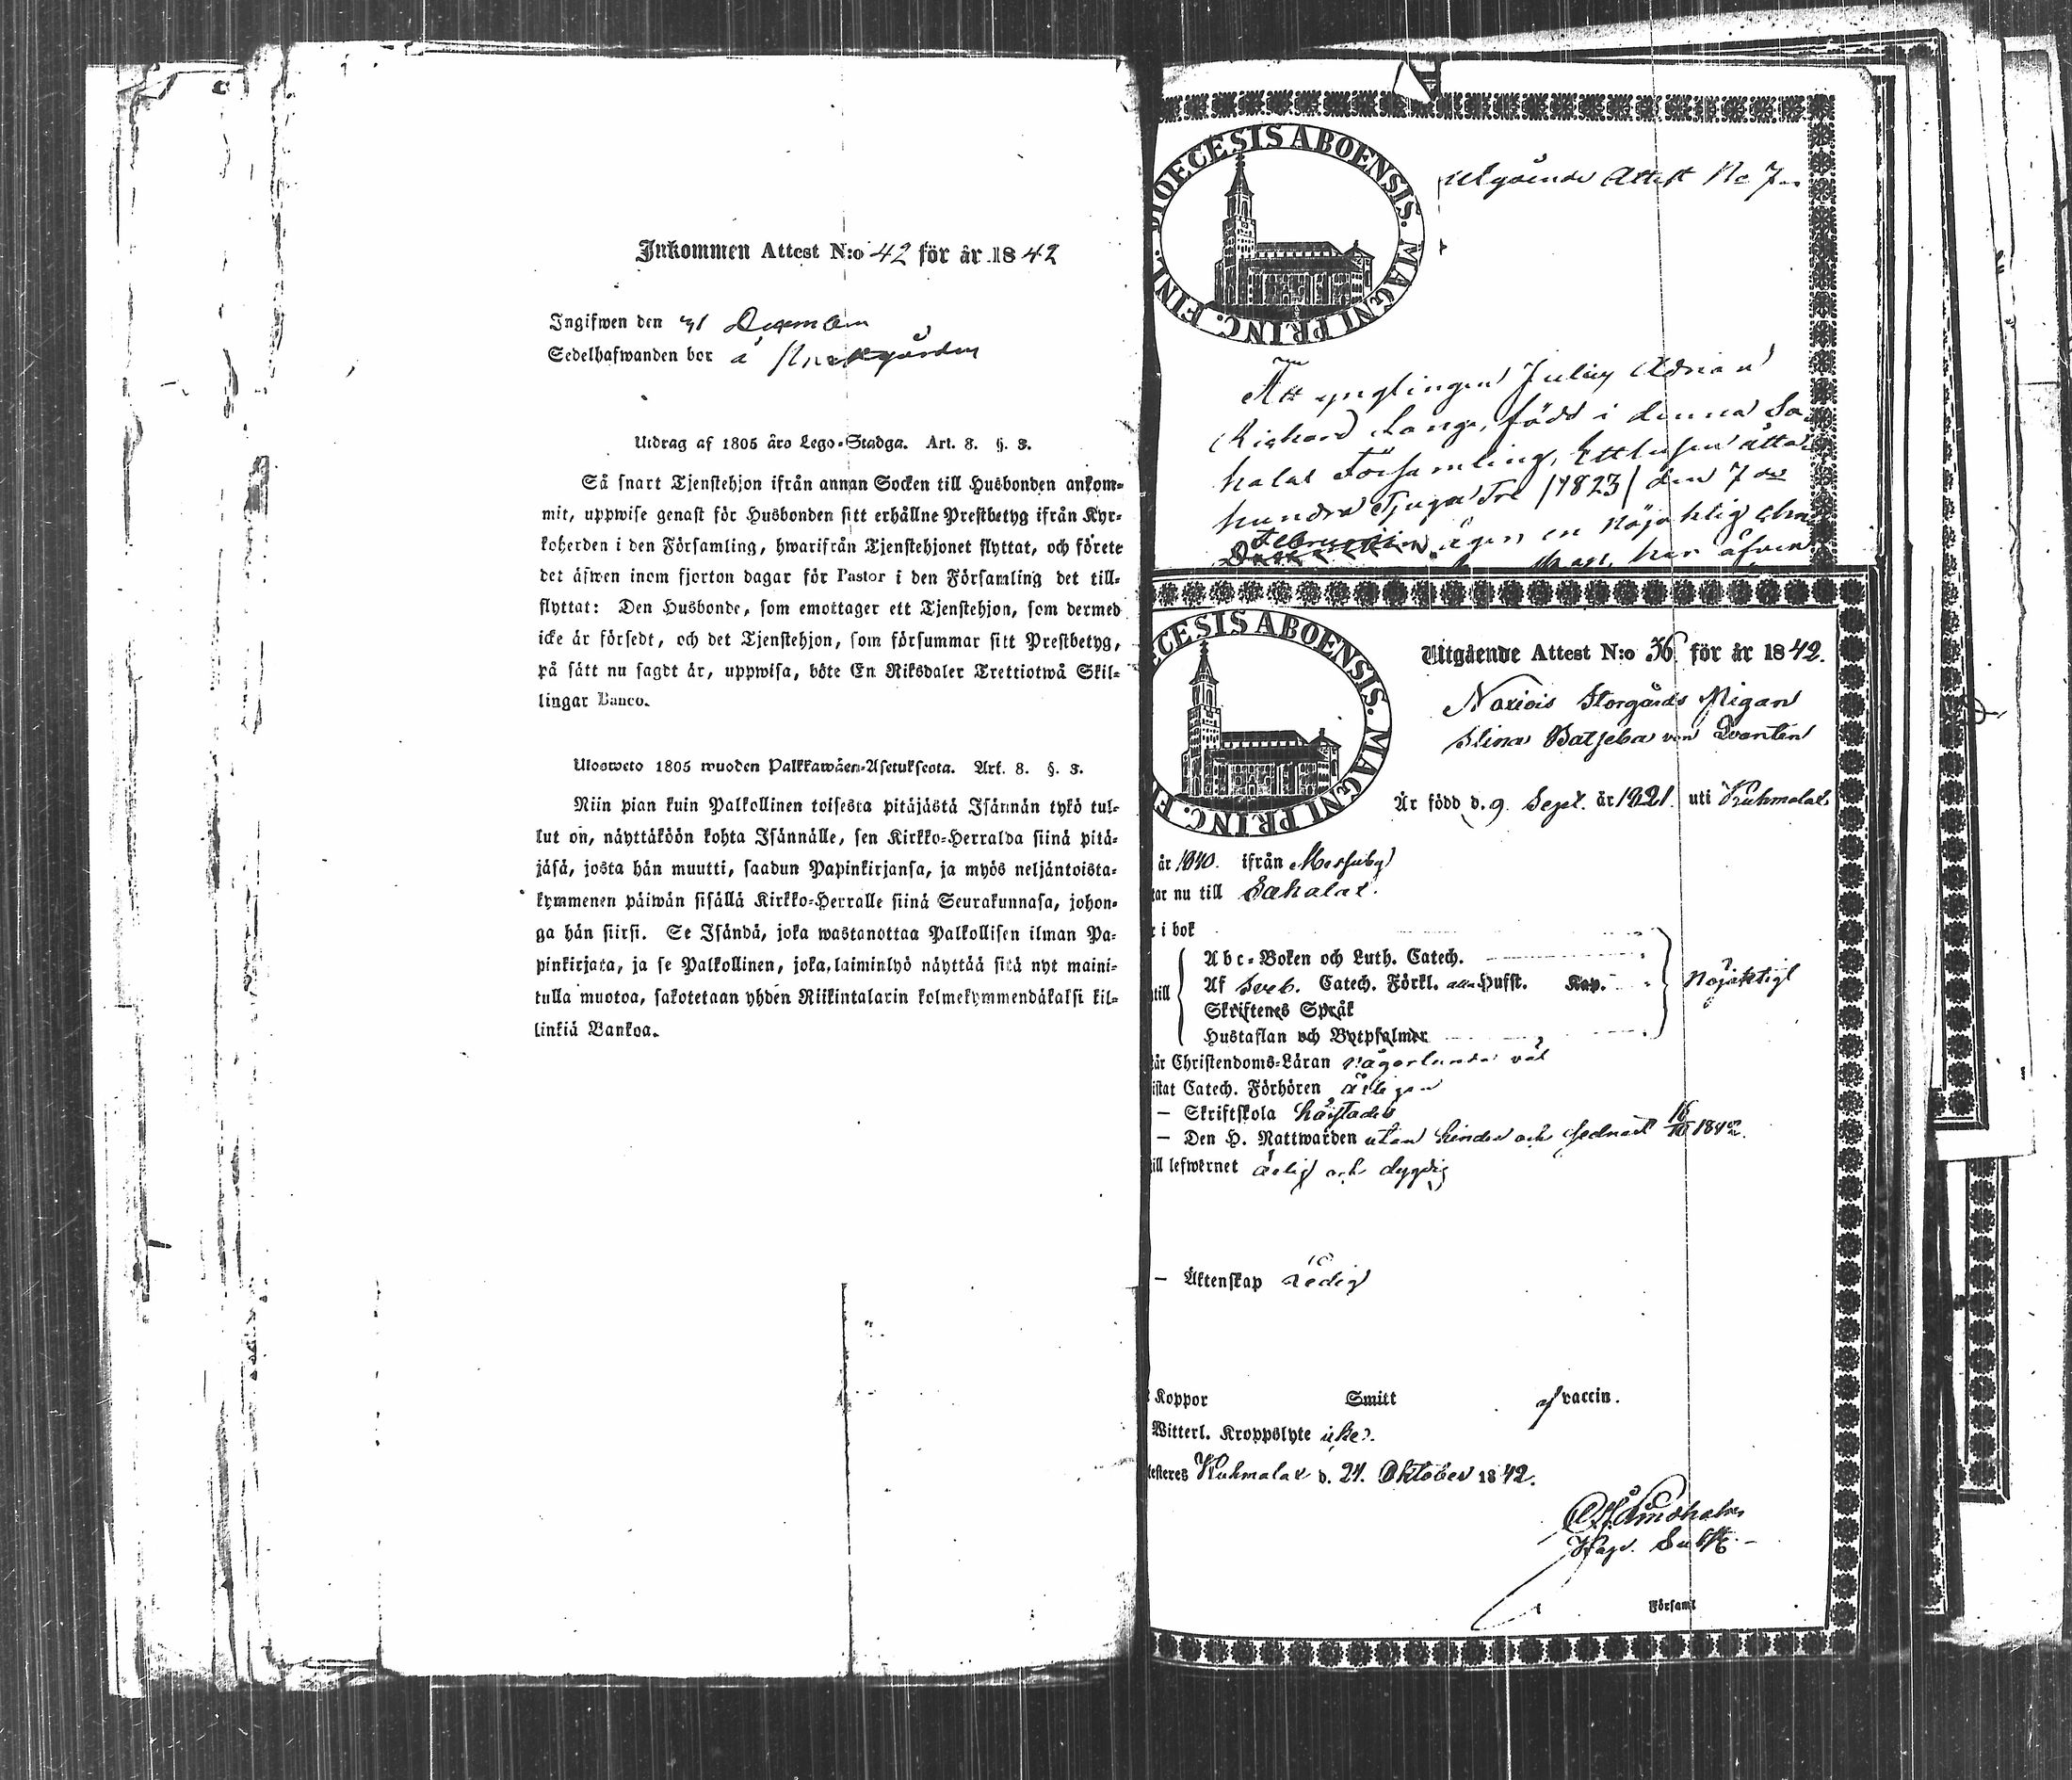 Inkommen Attest N:o 42 för år 1842
Ingifwen den 31 December
Sedelhafwanden bor å
Utdrag af 1805 års Lego-Stadga. Art. 8. §. 3.
Så snart Tjenstehjon ifrån annan Socken till Husbonden ankom-
mit, uppwise genast för Husbonden sitt erhållne Prestbetyg ifrån Kyr-
koherden i den Församling, hwarifrån Tjenstehjonet flyttat, och förete
det äfwen inom fjorton dagar för Pastor i den Församling det till-
flyttat: Den Husbonde, som emottager ett Tjenstehjon, som dermed
icke är försedt, och det Tjenstehjon, som försummar sitt Prestbetyg,
på sätt nu sagdt är, uppwisa, böte En Riksdaler Trettiotwå Skil-
lingar Banco.
Ulosweto 1805 wuoden Palkkawäen-Asetuksesta. Art. 8. §. 3.
Niin pian kuin Palkollinen toisesta pitäjästä Isännän tykö tul-
lut on, näyttäköön kohta Isännälle, sen Kirkko-Herralda siinä pitä-
jäsä, josta hän muutti, saadun Papinkirjansa, ja myös neljäntoista-
kymmenen päiwän sisällä Kirkko-Herralle siinä Seurakunnasa, johon-
ga hän siirsi. Se Isändä, joka wastanottaa Palkollisen ilman Pa-
pinkirjata, ja se Palkollinen, joka laiminlyö näyttää sitä nyt maini-
tulla muotoa, sakotetaan yhden Riikintalarin kolmekymmendäkaksi kil-
linkiä Bankoa.
DIOECESIS ABOENSIS. MAGNI PRINC. FINL.
Utgående Attest No 7
Att ynglingen Julius Adrian
Richard Lange, född i denna Sa
halas Församling, Ett tusen åtta
hundra Tjugu Tre (1823) den 7de
Februarii, äger en nöjaktig
han, har äfven
CESIS ABOENSIS. MAGNI PRINC. FI
Utgående Attest N:o 36 för år 1842.
Storgårds Pigan
Stina Batseba von Qvanten
Är född d. 9 Sept. år 1821 uti Kuhmalax
år 1840. ifrån Messuby
tar nu till Sahalax.
r i bok
till
Abc-Boken och Luth. Catech.
Af Sveb. Catech. Förkl. Hufst. Kap.
Skriftenes Språk
Hustaflan och Botpsalmer
Nöjaktigt
tår Christendoms-Läran någorlunda väl
istat Catech. Förhören årligen
— Skriftskola
— Den H. Nattwarden utan hinder och sednast 16/10 1842.
till lefwernet ärlig och dygdig
— Äktenskap ledig
Koppor Smitt af vaccin.
Witterl. Kroppslyte icke.
testeres Kuhmalax d. 24. Oktober 1842.
Församl